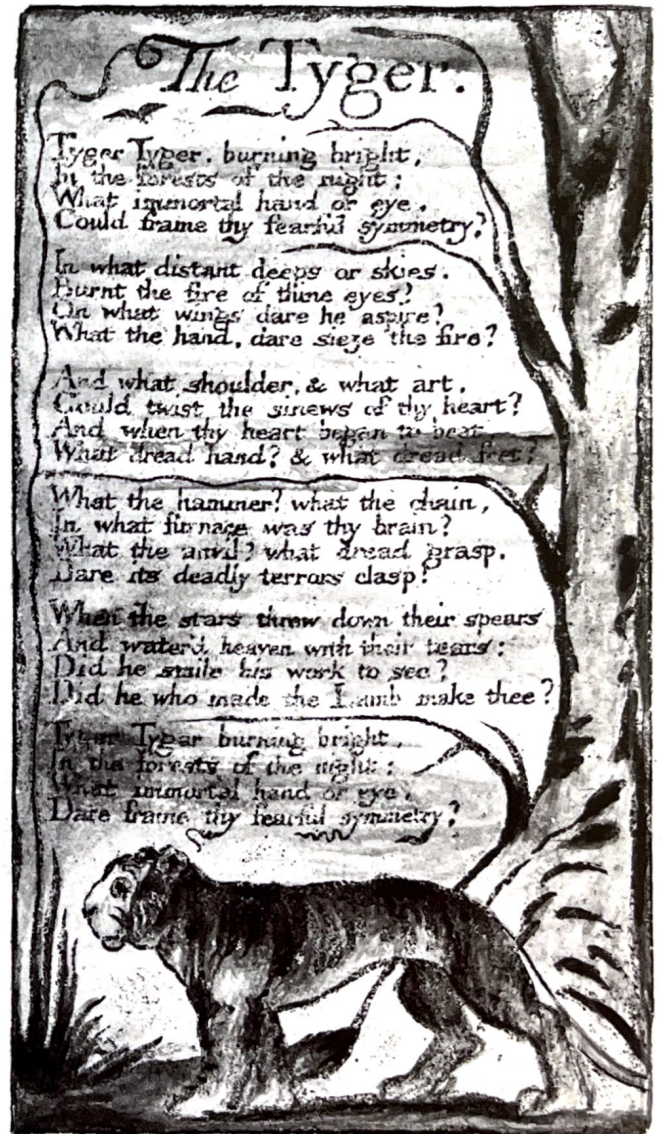 The Tyger.
Tyger Tyger. burning bright,
In the forests of the night:
What immortal hand or eye.
Could frame thy fearful symmetry?
In what distant deeps or skies.
Burnt the fire of thine eyes?
On what wings dare he aspire?
What the hand, dare sieze the fire?
And what shoulder, & what art,
Could twist the sinews of thy heart?
And when thy heart began to beat
What dread hand? & what dread feet?
What the hammer? what the chain,
In what furnace was thy brain?
What the anvil? what dread grasp.
Dare its deadly terrors clasp?
When the stars threw down their spears
And water'd heaven with their tears:
Did he smile his work to see?
Did he who made the Lamb make thee?
Tyger Tyger burning bright,
In the forests of the night:
What immortal hand or eye.
Dare frame thy fearful symmetry?